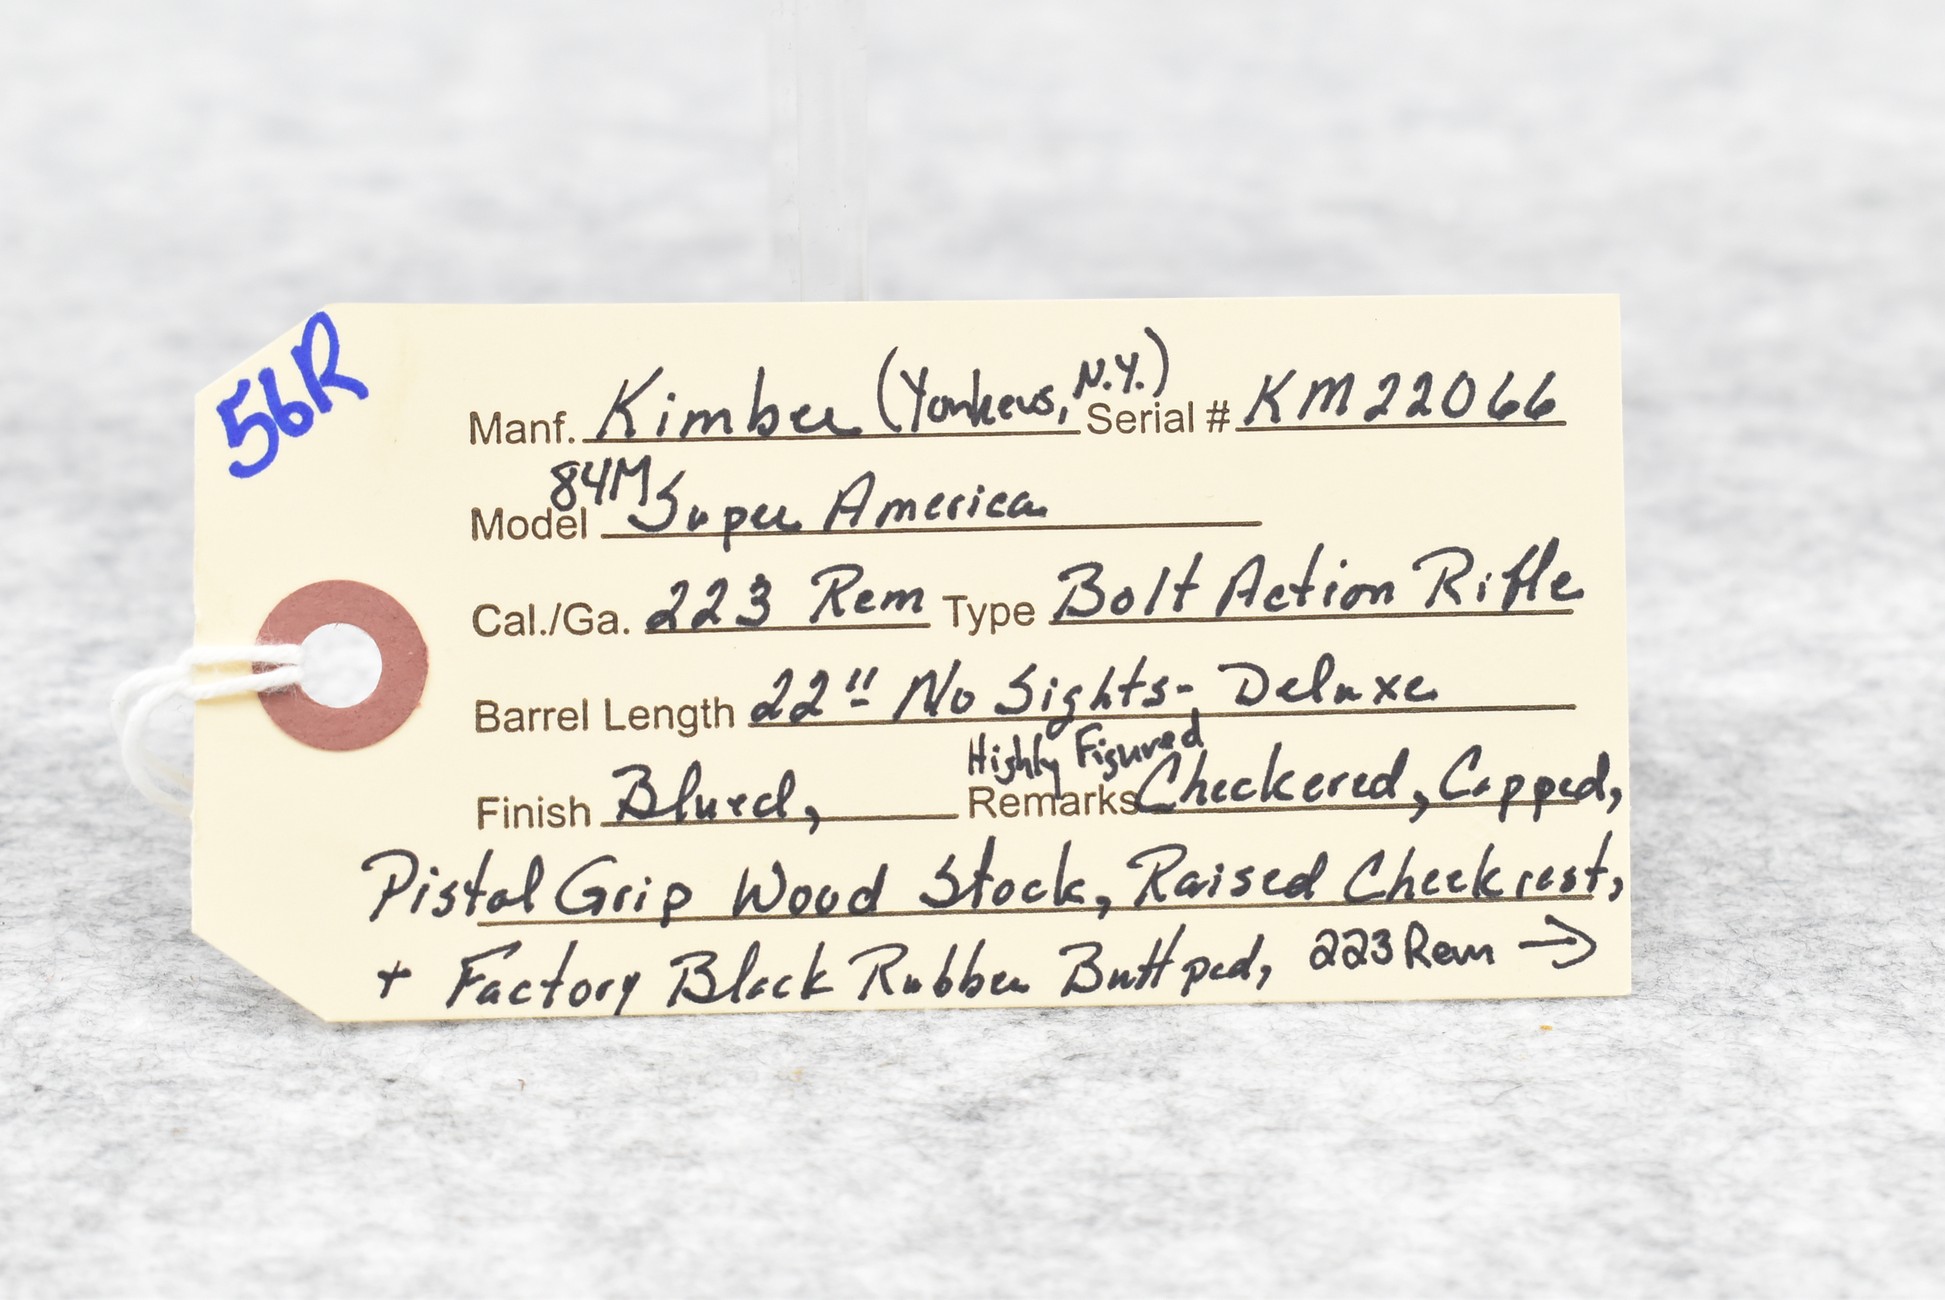 56R
Manf. Kimber (Yonkers, N.Y.) Serial # KM22066
Model 84M Super America
Cal./Ga. 223 Rem Type Bolt Action Rifle
Barrel Length 22" No Sights - Deluxe
Finish Blued, Remarks Highly Figured Checkered, Capped,
Pistol Grip Wood Stock, Raised Cheekrest,
+ Factory Black Rubber Buttpad, 223 Rem →